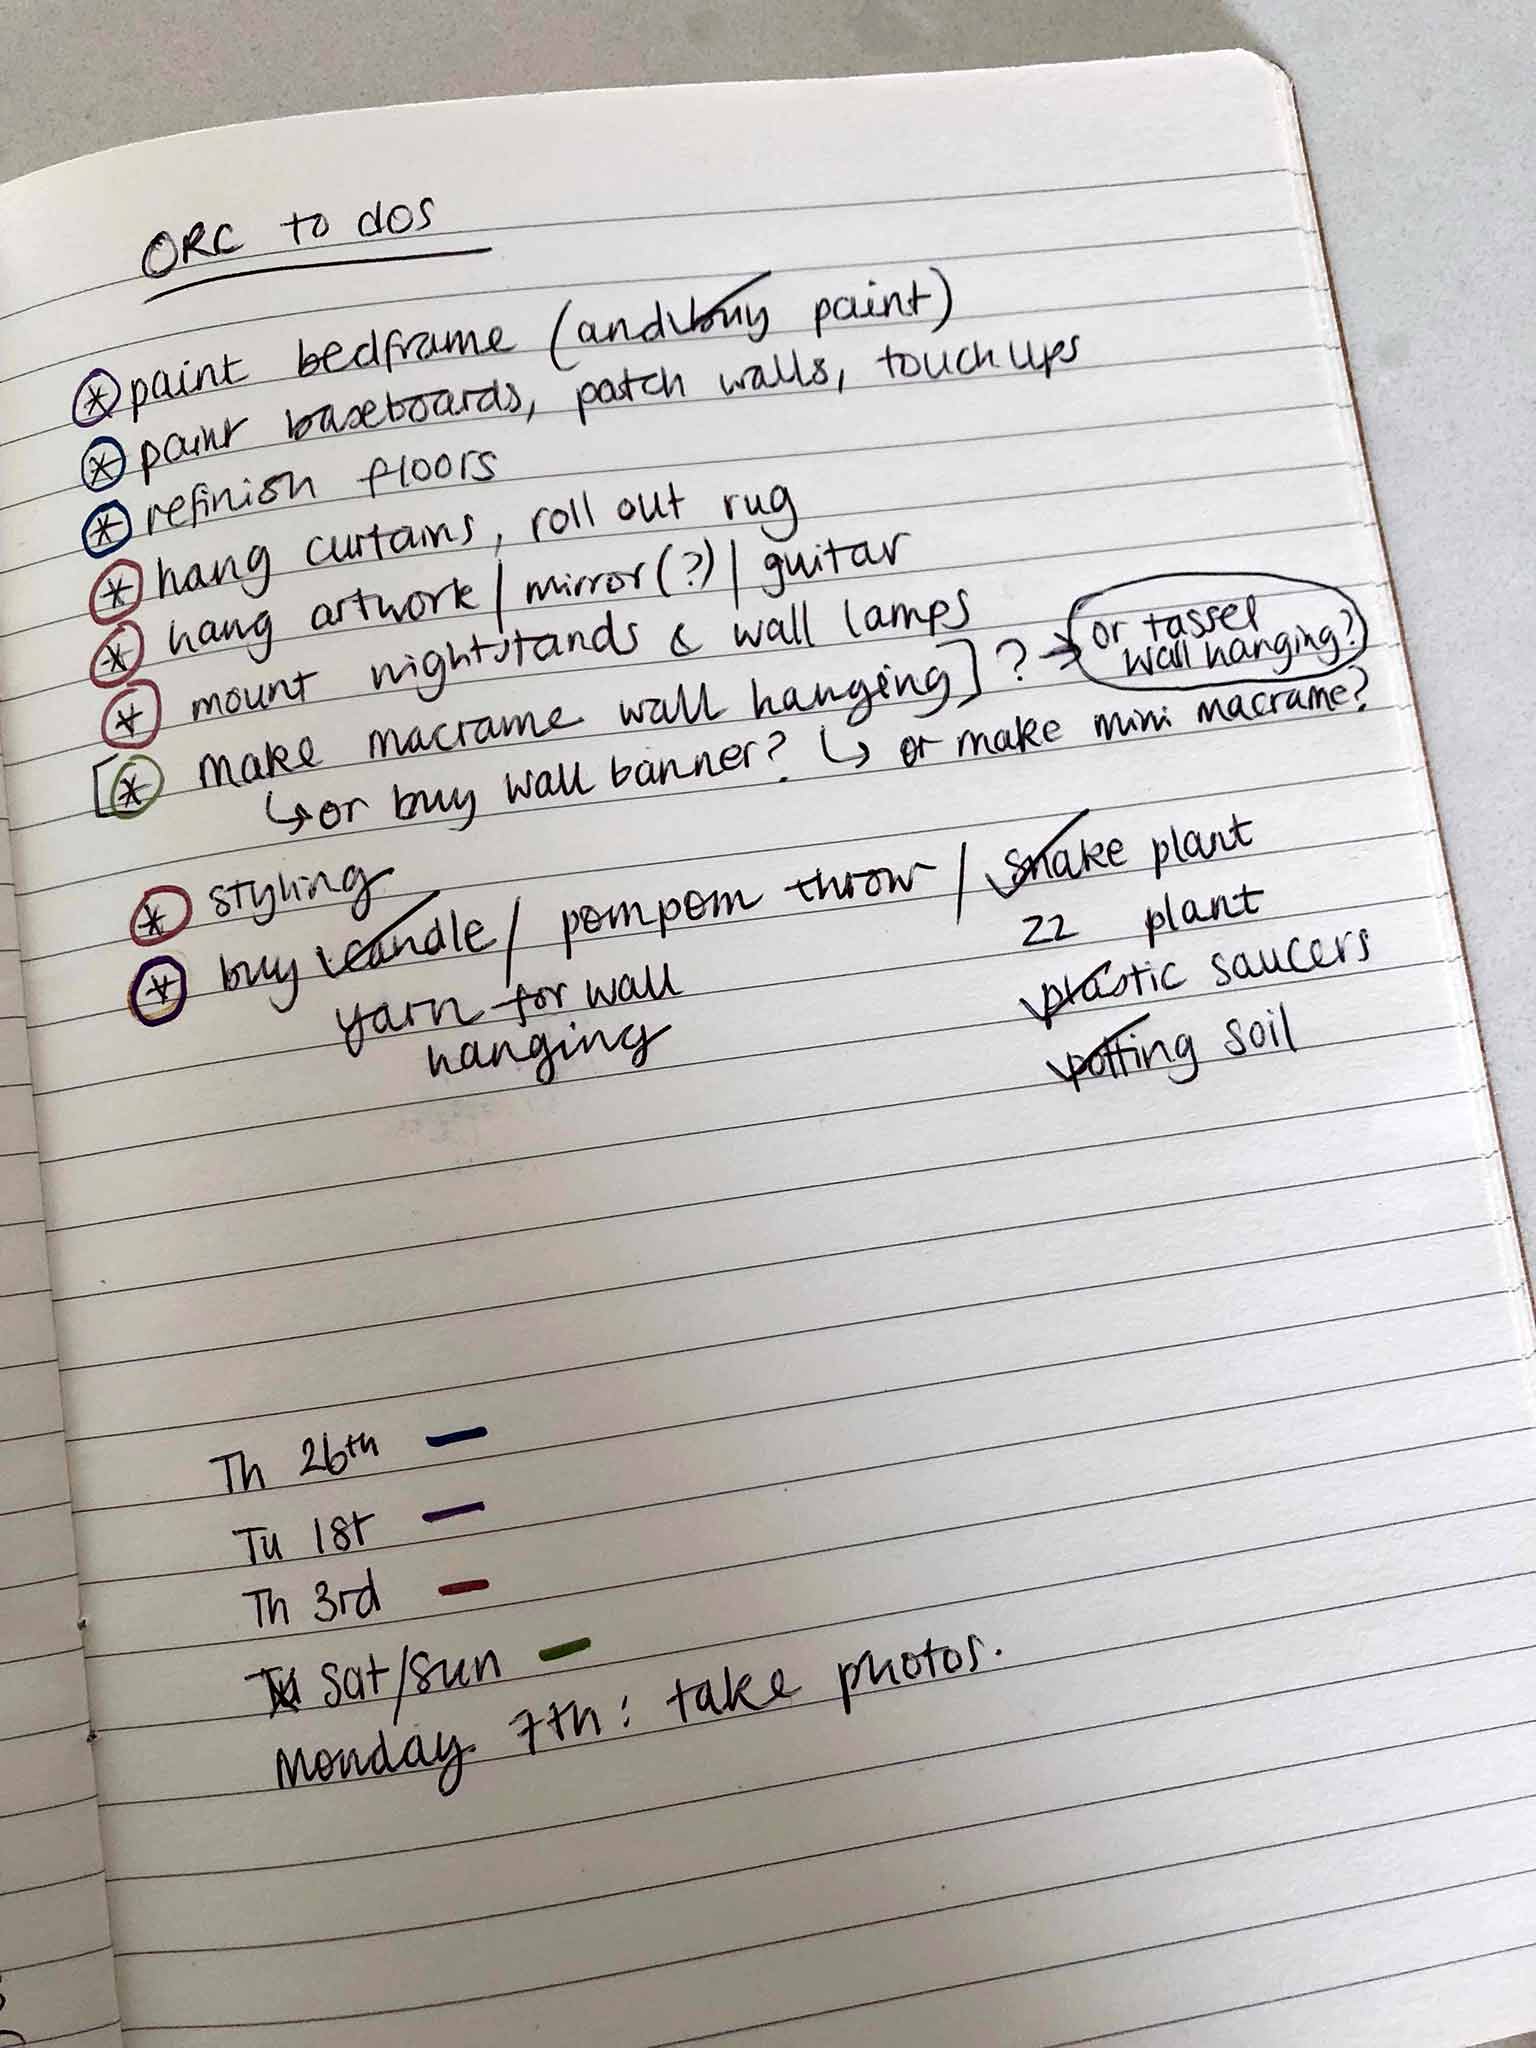 ORC to dos
* paint bedframe (and ✓buy paint)
* paint baseboards, patch walls, touch ups
* refinish floors
* hang curtains, roll out rug
* hang artwork / mirror(?) / guitar
* mount nightstands & wall lamps
[* make macrame wall hanging] ? → or tassel
wall hanging?
↳ or buy wall banner? ↳ or make mini macrame?
* styling
* buy ✓candle / pompom throw / ✓snake plant
ZZ plant
yarn for wall
hanging
✓plastic saucers
✓potting soil
Th 26th —
Tu 1st —
Th 3rd —
Sat/Sun —
Monday 7th: take photos.